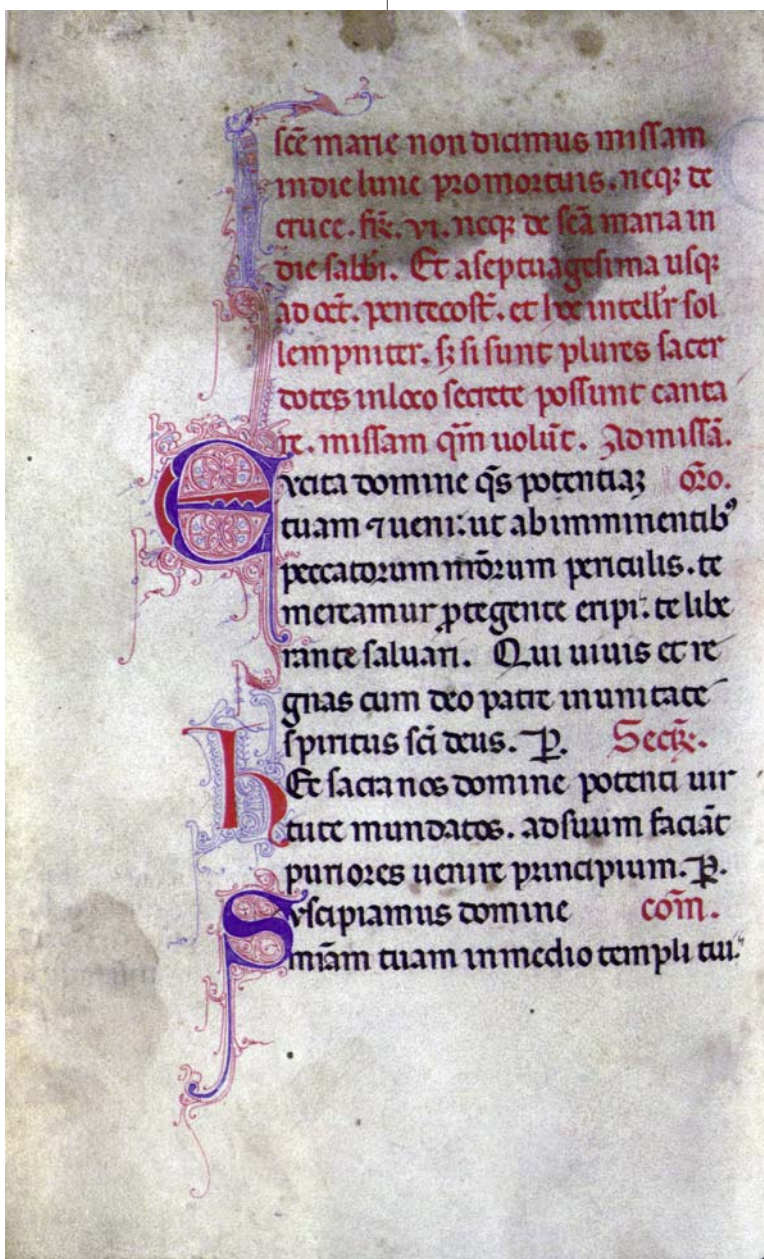 sc̄e marie non dicimus missam
in die lune pro mortuis. neqꝫ de
cruce. fr̄. vi. neqꝫ de sc̄a maria in
die sabb̄i. Et a septuagesima usqꝫ
ad oct̄. pentecost̄. et hec intell'r sol
lempniter. sꝫ si sunt plures sacer
dotes in loco secrete possunt canta
re. missam qm̄ uolūt. Ad missā.
Excita domine q̄s potentiaꝫ or̄o.
tuam ⁊ ueni: ut ab imminentibꝰ
peccatorum nr̄orum periculis. te
mereamur ꝓtegente eripi: te libe
rante saluari. Qui uiuis et re
gnas cum deo patre in unitate
spiritus sc̄i deus. P̄. Secr̄.
hEc sacra nos domine potenti uir
tute mundatos. ad suum faciāt
puriores uenire principium. P̄.
Suscipiamus domine com̄.
mīam tuam in medio templi tui: